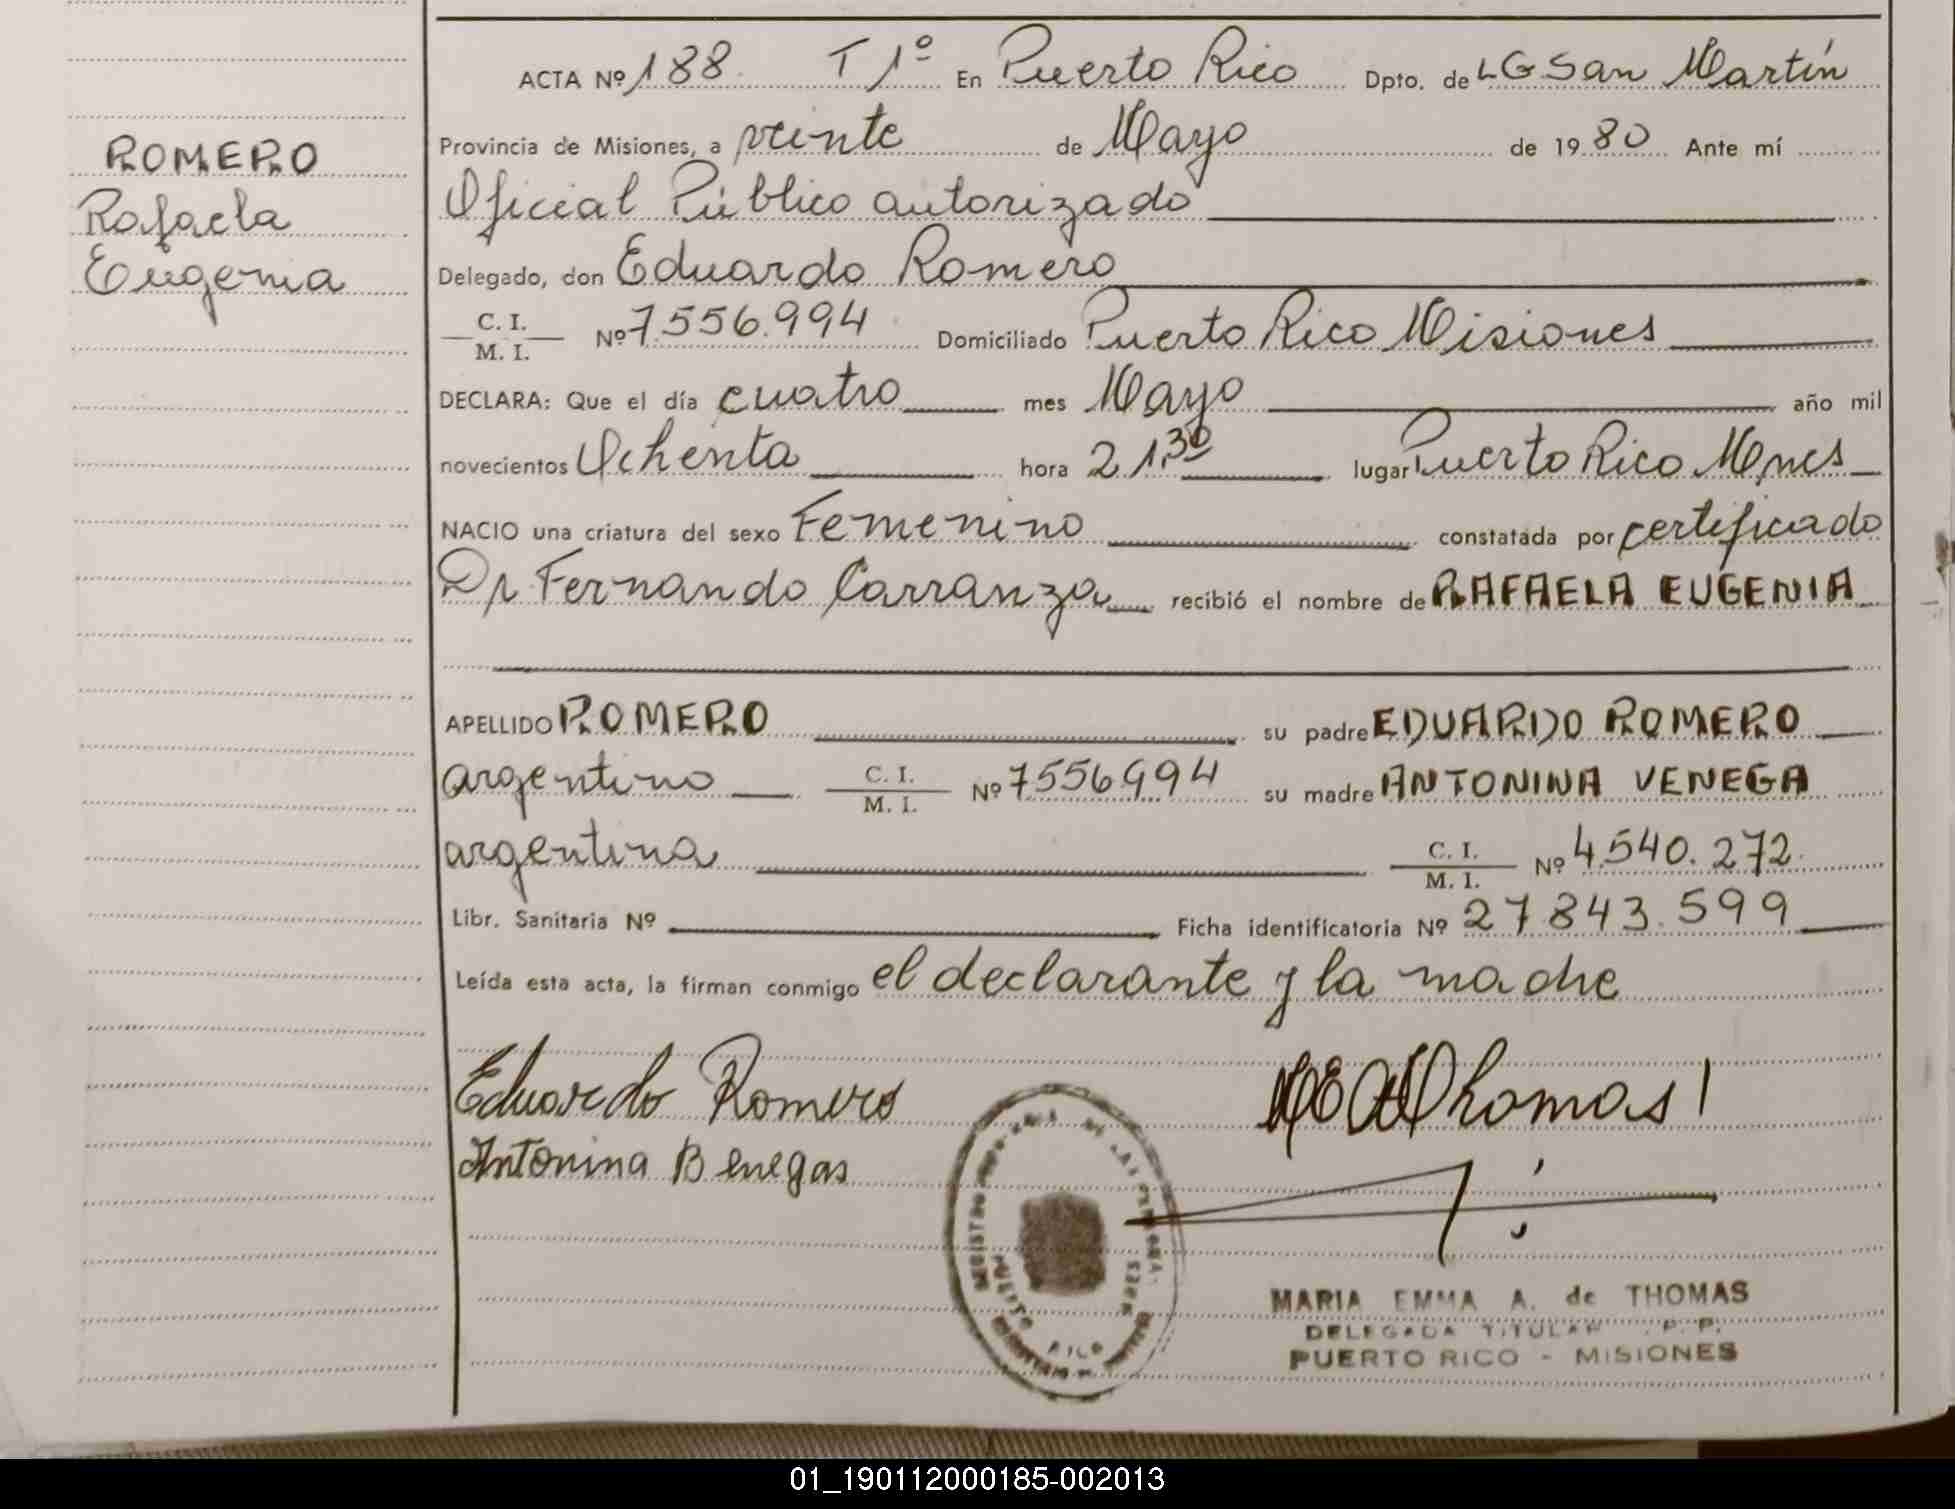 ROMERO
Rafaela
Eugenia
ACTA Nº 188 T 1º En Puerto Rico Dpto. de L G San Martín
Provincia de Misiones, a veinte de Mayo de 1980 Ante mí
Oficial Público autorizado
Delegado, don Eduardo Romero
C. I. / M. I. Nº 7.556.994 Domiciliado Puerto Rico Misiones
DECLARA: Que el día cuatro mes Mayo año mil
novecientos Ochenta hora 21,30 lugar Puerto Rico Mnes
NACIO una criatura del sexo Femenino constatada por certificado
Dr Fernando Carranza recibió el nombre de RAFAELA EUGENIA
APELLIDO ROMERO su padre EDUARDO ROMERO
argentino C. I. / M. I. Nº 7556994 su madre ANTONINA VENEGA
argentina C. I. / M. I. Nº 4.540.272
Libr. Sanitaria Nº Ficha identificatoria Nº 27.843.599
Leída esta acta, la firman conmigo el declarante y la madre
Eduardo Romero
Antonina Benegas
Thomas
REGISTRO DE LAS PERSONAS
PUERTO RICO
MARIA EMMA A. de THOMAS
DELEGADA TITULAR P. P.
PUERTO RICO - MISIONES
01_190112000185-002013